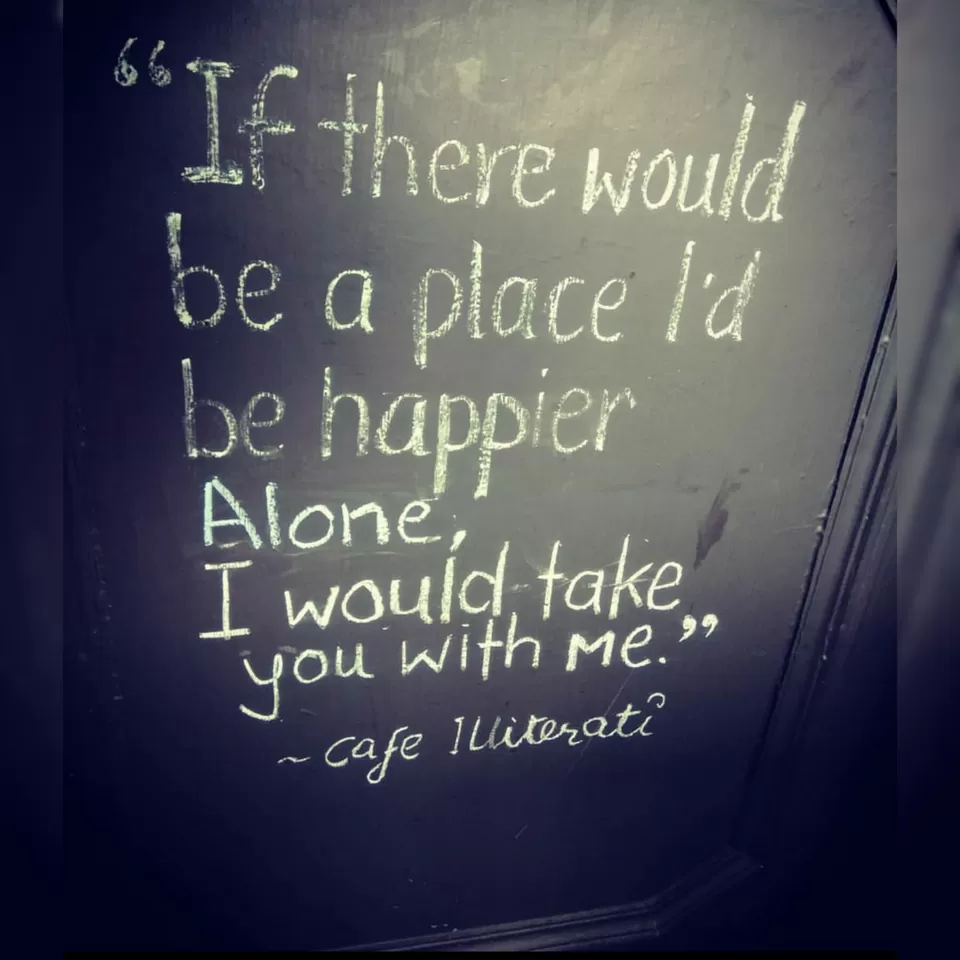 “If there would
be a place I'd
be happier
Alone,
I would take
you with me.”
~ Cafe Illiterati